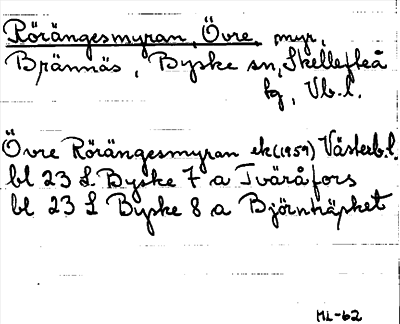 Rörängesmyran, Övre, myr,
Brännäs, Byske sn, Skellefteå
kg, Vb.l.
Övre Rörängesmyran ek(1959) Västerb.l.
bl 23 L Byske 7 a Tväråfors
bl 23 L Byske 8 a Björnträsket
ML-62